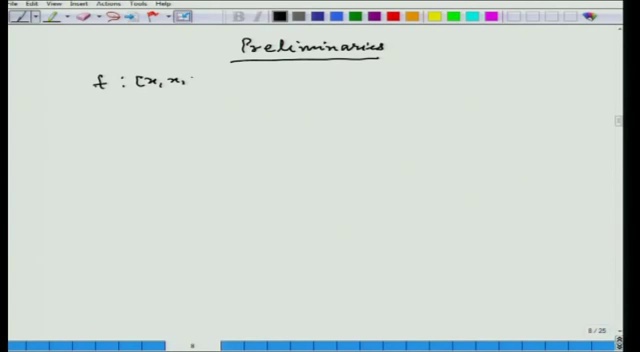 File Edit View Insert Actions Tools Help
Preliminaries
f : [x, x,
8 / 25